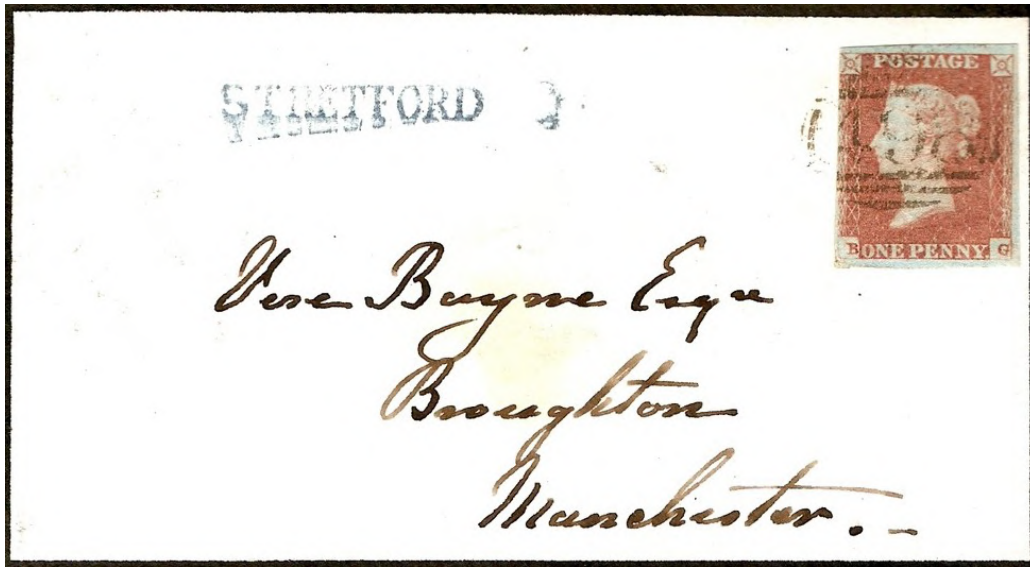 STRETFORD
POSTAGE
498
B ONE PENNY. G
Vere Bayne Esqre
Broughton
Manchester.